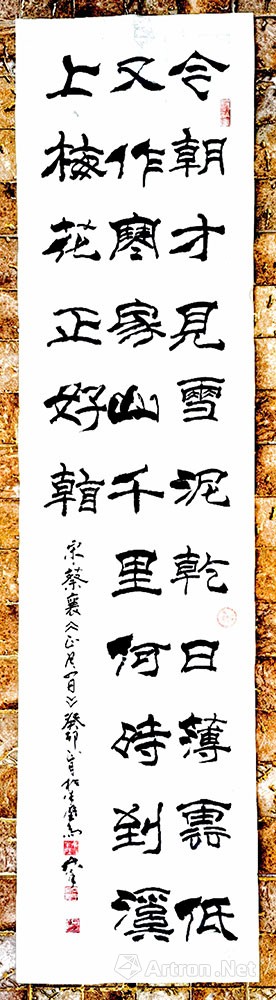 今朝才見雪泥乾日薄雲低
又作寒家山千里何時到溪
上梅花正好看
宋蔡襄《正月日》癸卯
Artron.Net